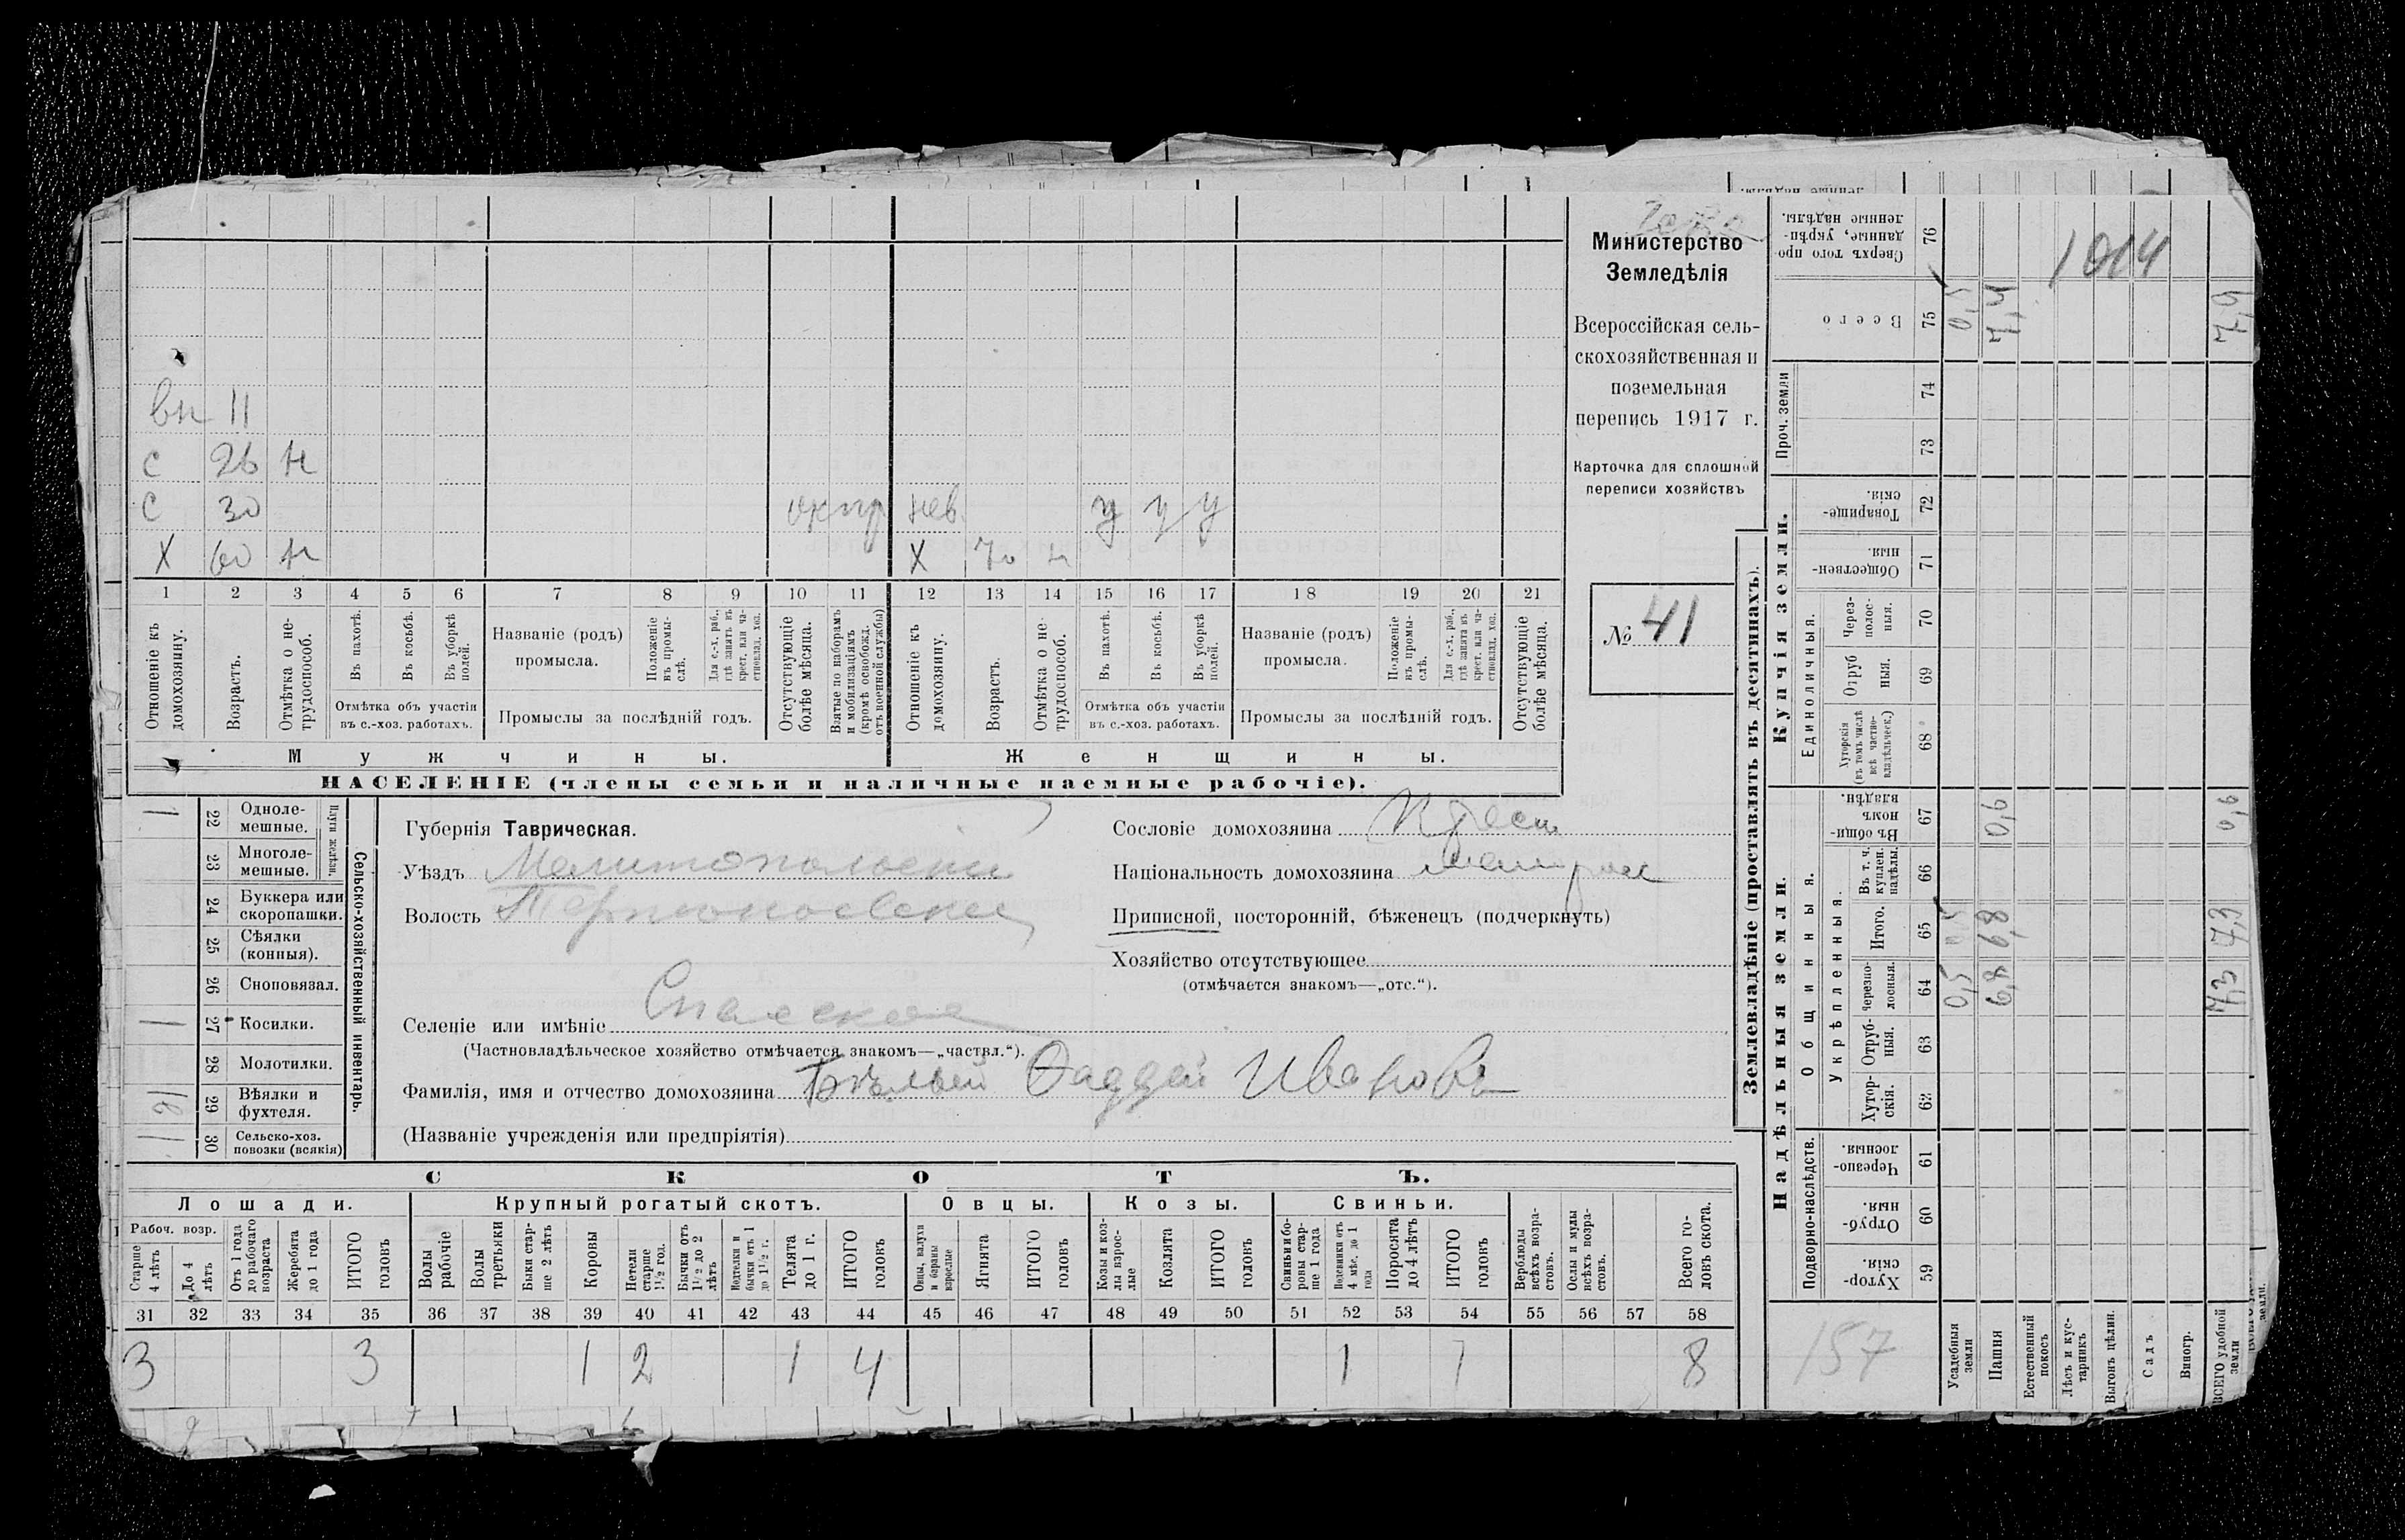 Министерство
Земледѣлія
Всероссійская сель-
скохозяйственная и
поземельная
перепись 1917 г.
Карточка для сплошной
переписи хозяйствъ
№ 41
вн 11
с 26 н
с 30 нев. у у у
х 60 н х 70 н
1 2 3 4 5 6 7 8 9 10 11 12 13 14 15 16 17 18 19 20 21
Отношеніе къ домохозяину.
Возрастъ.
Отмѣтка о не-трудоспособ.
Въ пахотѣ.
Въ косьбѣ.
Въ уборкѣ полей.
Отмѣтка объ участіи
въ с.-хоз. работахъ.
Названіе (родъ)
промысла.
Положеніе въ промы-слѣ.
Для с.-х. раб., гдѣ занятъ въ крест. или ча-стновлад. хоз.
Промыслы за послѣдній годъ.
Отсутствующіе болѣе мѣсяца.
Взятые по наборамъ и мобилизаціямъ (кромѣ освобожд. отъ военной службы)
Отношеніе къ домохозяину.
Возрастъ.
Отмѣтка о не-трудоспособ.
Въ пахотѣ.
Въ косьбѣ.
Въ уборкѣ полей.
Отмѣтка объ участіи
въ с.-хоз. работахъ.
Названіе (родъ)
промысла.
Положеніе въ промы-слѣ.
Для с.-х. раб., гдѣ занята въ крест. или ча-стновлад. хоз.
Промыслы за послѣдній годъ.
Отсутствующіе болѣе мѣсяца.
Мужчины. Женщины.
НАСЕЛЕНІЕ (члены семьи и наличные наемные рабочіе).
Сельско-хозяйственный инвентарь.
Плуги желѣзн.
1 22 Одноле-мешные.
23 Многоле-мешные.
24 Буккера или скоропашки.
25 Сѣялки (конныя).
26 Сноповязал.
1 27 Косилки.
28 Молотилки.
29 Вѣялки и фухтеля.
1 30 Сельско-хоз. повозки (всякія)
Губернія Таврическая.
Уѣздъ Мелитопольскій
Волость
Селеніе или имѣніе Спасское
(Частновладѣльческое хозяйство отмѣчается знакомъ—„частвл.“).
Фамилія, имя и отчество домохозяина Бѣлый Ѳаддей Ивановъ
(Названіе учрежденія или предпріятія)
Сословіе домохозяина Крест
Національность домохозяина малорос
Приписной, посторонній, бѣженецъ (подчеркнуть)
Хозяйство отсутствующее
(отмѣчается знакомъ—„отс.“).
СКОТЪ.
Лошади. Крупный рогатый скотъ. Овцы. Козы. Свиньи.
Рабоч. возр.
Старше 4 лѣтъ
До 4 лѣтъ
Отъ 1 года до рабочаго возраста
Жеребята до 1 года
ИТОГО головъ
Волы рабочіе
Волы третьяки
Быки стар-ше 2 лѣтъ
Коровы
Нетели старше 1½ год.
Бычки отъ 1½ до 2 лѣтъ
Подтелки и бычки отъ 1 до 1½ г.
Телята до 1 г.
ИТОГО головъ
Овцы, валухи и бараны взрослые
Ягнята
ИТОГО головъ
Козы и коз-лы взрос-лые
Козлята
ИТОГО головъ
Свиньи и бо-ровы стар-ше 1 года
Подсвинки отъ 4 мѣс. до 1 года
Поросята до 4 лѣтъ
ИТОГО головъ
Верблюды всѣхъ возра-стовъ.
Ослы и мулы всѣхъ возра-стовъ.
Всего го-ловъ скота.
31 32 33 34 35 36 37 38 39 40 41 42 43 44 45 46 47 48 49 50 51 52 53 54 55 56 57 58
3 3 1 2 1 4 1 1 8
Землевладѣніе (проставлять въ десятинахъ).
Надѣльныя земли. Купчія земли.
Подворно-наслѣдств.
Общинныя.
Укрѣпленныя.
Единоличныя.
Проч. земли
59 Хутор-скія.
60 Отруб-ныя.
61 Черезпо-лосныя.
62 Хутор-скія.
63 Отруб-ныя.
64 Черезпо-лосныя.
65 Итого.
66 Въ т. ч. куплен. надѣлы.
67 Въ общи-номъ владѣн.
68 Хуторскія (въ томъ числѣ всѣ частно-владѣльческ.)
69 Отруб ныя.
70 Через-полос-ныя.
71 Обществен-ныя.
72 Товарище-скія.
73
74
75 Всего
76 Сверхъ того про-данные, укрѣп-ленные надѣлы.
1014
157
Усадебныя земли 0,5 0,5 0,5
Пашня 6,8 6,8 0,6 7,4
Естественный покосъ
Лѣсъ и кус-тарникъ
Выгонъ цѣлин.
Садъ
Виногр.
ВСЕГО удобной земли 7,3 7,3 0,6 7,9